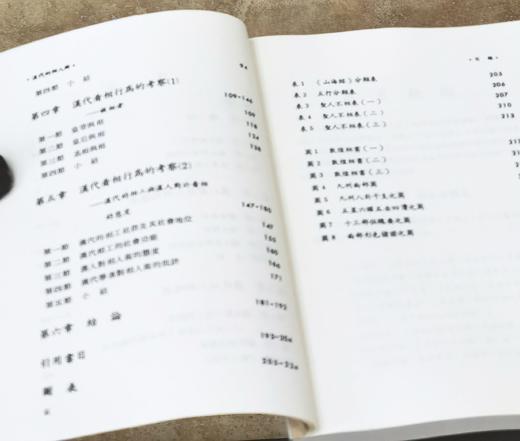 ·漢代的相人術·
第四節 小 結 94
第四章 漢代看相行為的考察(1) 109-146
第一節 皇帝與相 109
第二節 皇后與相 118
第四節 小 結
第五章 漢代看相行為的考察(2)
的態度 147-180
第一節 漢代的相工社群及其社會地位 147
第二節 漢代相工的社會功能 155
第三節 漢人對相人術的態度
第四節 漢代學者對相人術的批評
第五節 小 結 171
第六章 結 論 181-192
引用書目
圖 表
·目 錄·
表1 《山海經》分類表 203
表2 五行分類表 206
表3 聖人不相表(一) 207
表4 聖人不相表(二) 210
表5 聖人不相表(三) 213
圖1 敦煌相書(一)
圖2 敦煌相書(二)
圖3 敦煌相書(三)
圖4 九州面部圖
圖5 九州八卦干支之圖
圖6 五星六曜五岳四瀆之圖
圖7 十三部位總要之圖